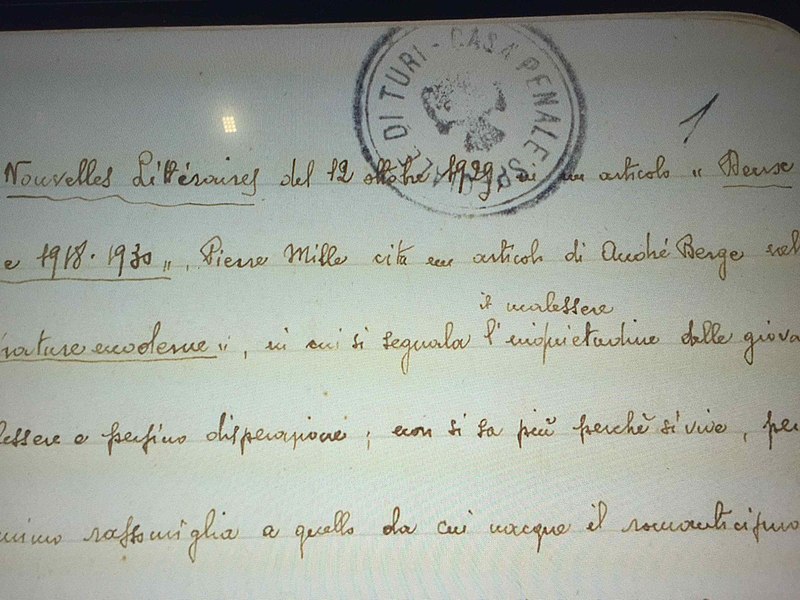 DI TURI - CASA PENALE SP
1
Nouvelles Littéraires del 12 ottobre 1929, in un articolo „ Deux
e 1918-1930 „, Pierre Mille cita un articolo di André Berge nel
il malessere
rature moderne „, in cui si segnala l'inquietudine delle giova
lessere e persino disperazione; non si sa più perché si vive, per
nimo rassomiglia a quello da cui nacque il romanticismo